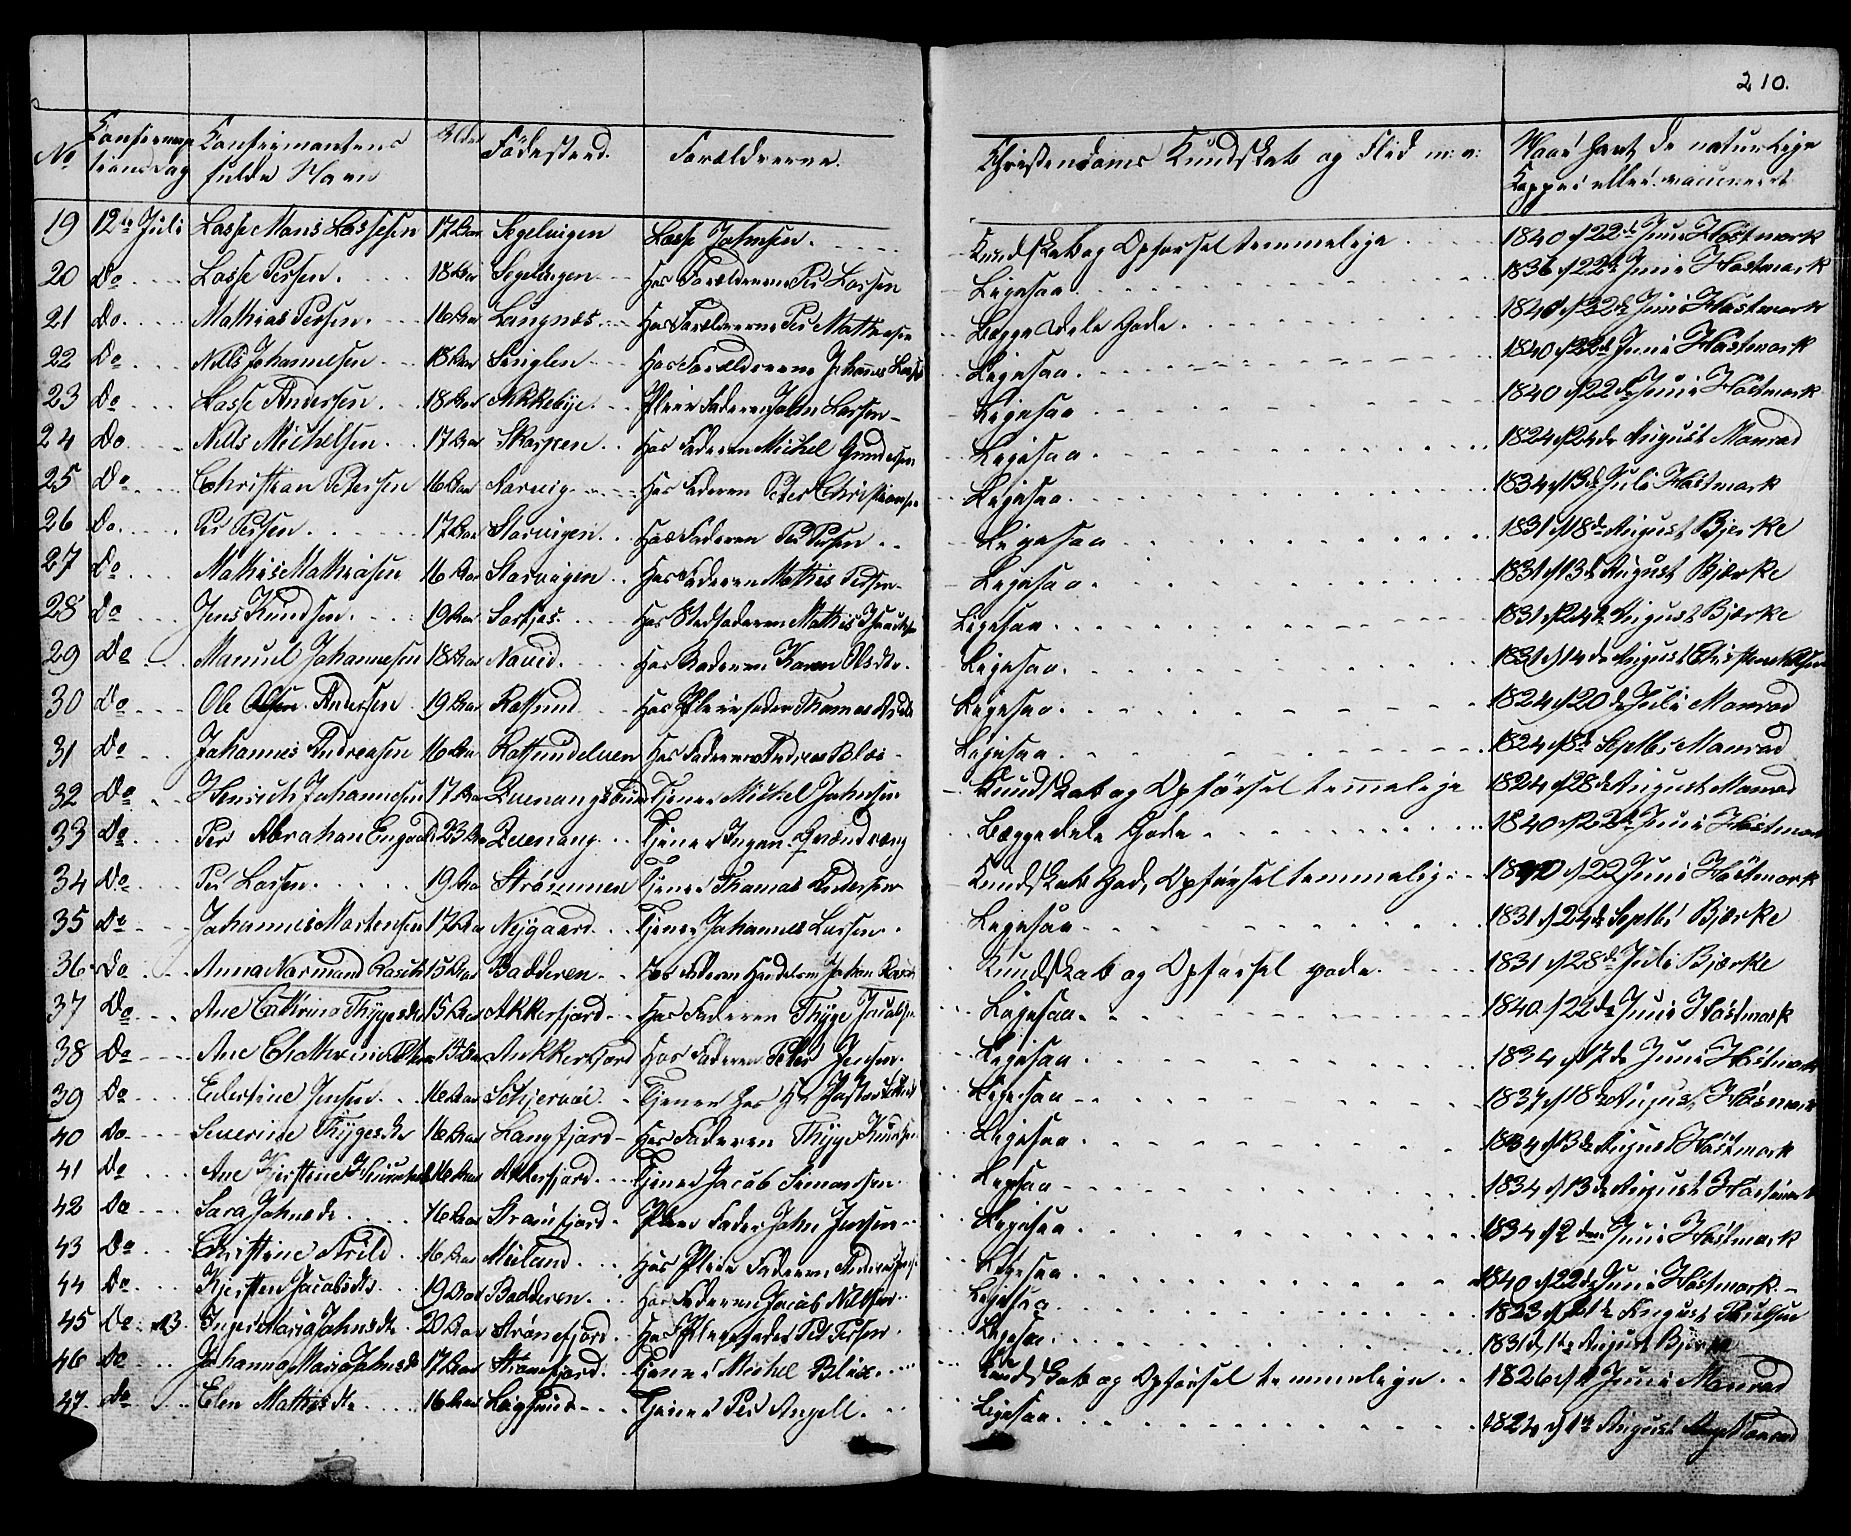 210.
No Confirmations Dag Confirmantens fulde Navn Alder Födested. Forældrerne. Christendoms Kundskab og Flid m: v: Naar havt de naturlige Kopper eller vaccineret
19 12te Juli Lasse Mons Lassesen 17 Aar Segelvigen Lasse Johnsen. Kundskab og Opførsel temmelige 1840 d 22de Juni Høstmark
20 Do Lasse Persen. 18 Aar Segelvigen Hos Forældrerne Per Larsen Ligesaa 1836 d 22de Juni Høstmark
21 Do. Mathias Persen. 16 Aar Langnæs. Hos Forældrerne Per Mathiesen Begge Dele Gode. 1840 d 22de Juni Høstmark
22 Do Nills Johannesen 18 Aar Speglen Hos Forældrerne Johannes Ligesaa. 1840 d 22de Juni Høstmark
23 Do Lasse Andersen 18 Aar Nikkebye. Pleie Faderen John Larsen Ligesaa 1840 d 22de Juni Høstmark
24 Do Nills Michelsen 17 Aar Skarpen Hos Faderen Michel Gundersen Ligesaa 1824 d 24de August Monrad
25 Do Christian Petersen 16 Aar Storvig Hos Faderen Peter Christiansen Ligesaa 1834 d 13de Juli Høstmark
26 Do. Per Persen 17 Aar Storvigen. Hos Faderen Per Persen Ligesaa 1831 d 18de August Bjerke
27 Do Mathis Mathiasen 16 Aar Storvigen Hos Faderen Mathis Persen Ligesaa 1831 d 13de August Bjærke
28 Do Jens Knudsen. 19 Aar Sorkjos. Hos Stedfaderen Mathis Isaachsen Ligesaa 1831 d 24de August Bjærke
29 Do Manuel Johannesen 18 Aar Navid. Hos Moderen Karen Olsdtr. Ligesaa 1831 d 14de August
30 Do Ole Andersen 19 Aar Rotsund Hos Pleiefader Thomas Ligesaa. 1824 d 20de Juli Monrad
31 Do Johannes Andreasen 16 Aar Rotsundelven Hos Faderen Andreas Blæs Ligesaa 1824 d 8de Septbr Monrad
32 Do Henrich Johannesen 17 Aar Quenangsbund Tjener Michel Johnsen Kundskab og Opførsel temmelige 1824 d 28de August Monrad
33 Do Per Abraham Engvald 23 Aar Quenang Tjener Ingen. Qvændræng Bægge dele Gode. 1840 d 22de Juni Høstmark
34 Do Per Larsen. 19 Aar Strømmen Tjener Thomas Pedersen Kundskab God, Opførsel temmelig 1840 d 22 Juni Høstmark
35 Do Johannes Mortensen 17 Aar Nygaard Tjener Johannes Larsen. Ligesaa 1831 d 24de Septbr Bjærke
36 Do Anna Normand Rasch 15 Aar Badderen Hos Faderen Handelsm. Johan Rasch Kundskab og Opførsel gode. 1831 d 28de Juli Bjærke
37 Do Ane Cathrine Thygesdtr 15 Aar Akkerfjord Hos Faderen Thyge Jacobsen Ligesaa. 1840 d 22de Juni Høstmark
38 Do Ane Chathrine 15 Aar Ankkerfjord Hos Faderen Peder Jensen. Ligesaa 1834 d 17de Juni Høstmark
39 Do Edertine Jensen 16 Aar Schjervøe Tjener hos Hr Pastor Ligesaa 1837 d 18de August Høsmark
40 Do Severine Thygesdtr 16 Aar Langfjord Hos Faderen Thyge Knudsen Ligesaa. 1834 d 13de August Høstmark
41 Do Ane Kjerstine 16 Aar Akkerfjord Tjener Jacob Simonsen. Ligesaa 1834 d 13de August Høstmark
42 Do Sara Johnsdtr. 16 Aar Straumfjord. Pleie Fader John Jensen Ligesaa 1834 d 2den Juni Høstmark
43 Do Christine Arild 16 Aar Meiland Hos Pleie Faderen Andreas Ligesaa 1840 d 22de Juni Høstmark
44 Do Kjersten Jacobsdtr. 19 Aar Badderen. Hos Faderen Jacob Nilsen. Ligesaa 1823 d 21de August
45 Do Inger Maria Johnsdtr 20 Aar Strømfjord. Hos Pleiefader Per Persen Ligesaa 1831 d 1te August Bjerke
46 Do Johanna Maria Johnsdtr 17 Aar Strømfjord. Tjener Michel Blix. Kundskab og Opførsel temmelige 1826 d 1te Juni Monrad
47. Do Elen Mathisdtr. 16 Aar Løgsund Tjener Per Angell. Ligesaa. 1824 d 1te August Monrad